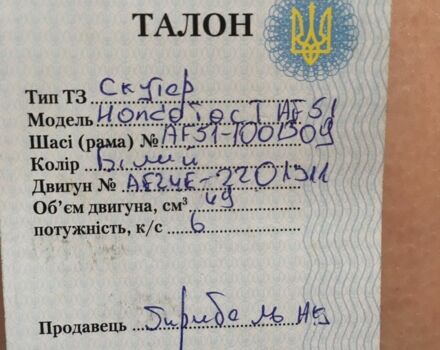 ТАЛОН
Тип ТЗ Скутер
Модель Honda Tact AF51
Шасі (рама) № AF51-1001509
Колір Білий
Двигун № AF24E-2201311
Об'єм двигуна, см³ 49
потужність, к/с 6
Продавець